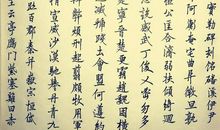 勒碑刻銘磻溪伊尹
奄宅曲阜微旦孰
桓公匡合濟弱扶傾綺
說感武丁俊乂密勿多
寧晉楚更霸趙魏困橫
滅虢踐土會盟何遵約
弊煩刑起翦頗牧用軍
精宣威沙漠馳譽丹青
跡百郡秦并嶽宗恆岱
主云亭雁門紫塞雞田赤